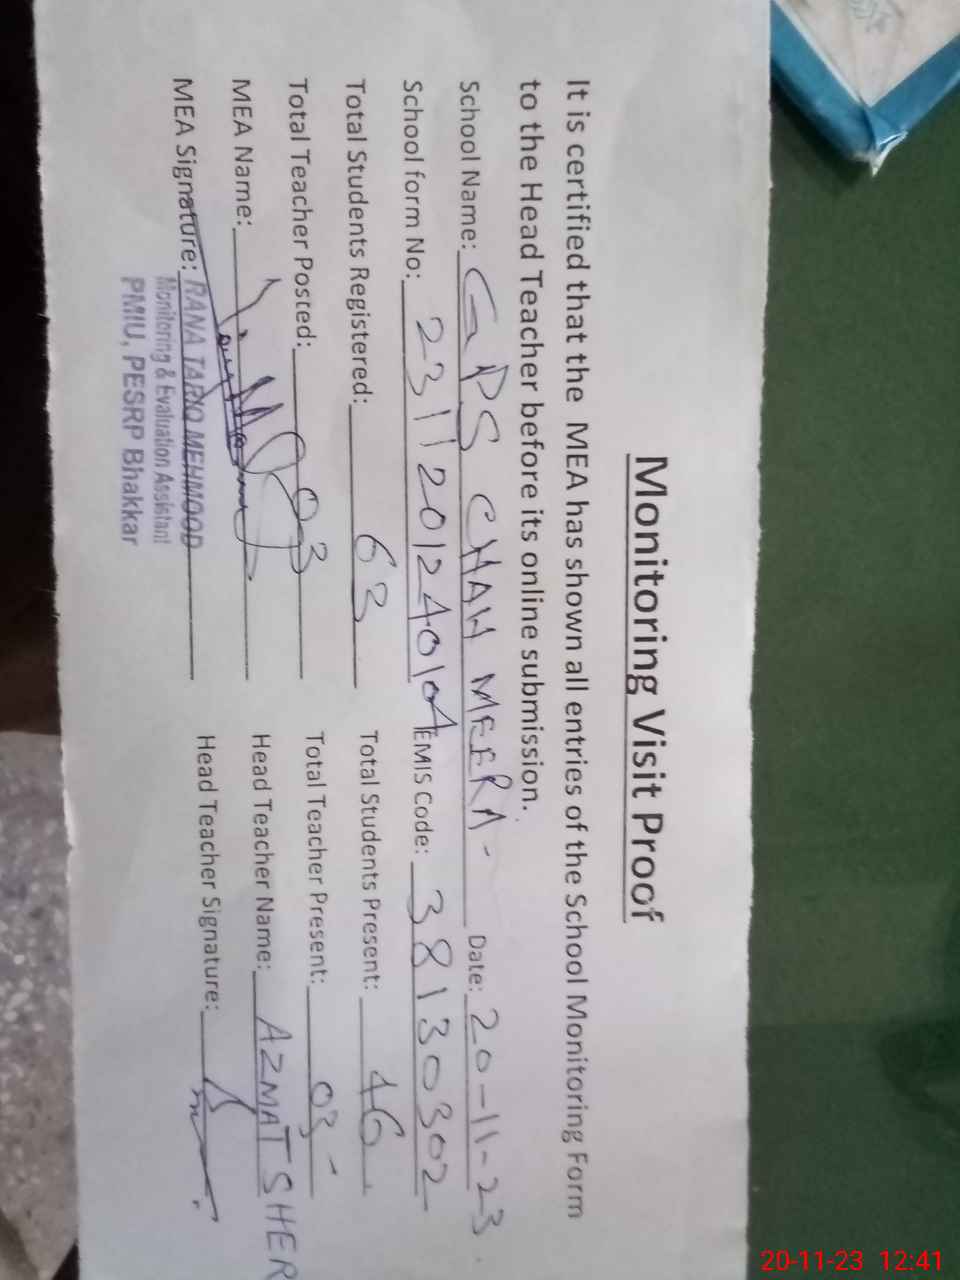 Monitoring Visit Proof
It is certified that the MEA has shown all entries of the School Monitoring Form
to the Head Teacher before its online submission.
School Name: GPS CHAH MEERA - Date: 20-11-23.
School form No: 2311201240104 EMIS Code: 38130302
Total Students Registered: 63 Total Students Present: 46
Total Teacher Posted: 03 Total Teacher Present: 03-
MEA Name: Head Teacher Name: AZMAT SHER
MEA Signature: RANA TARIQ MEHMOOD Head Teacher Signature:
Monitoring & Evaluation Assistant
PMIU, PESRP Bhakkar
20-11-23 12:41